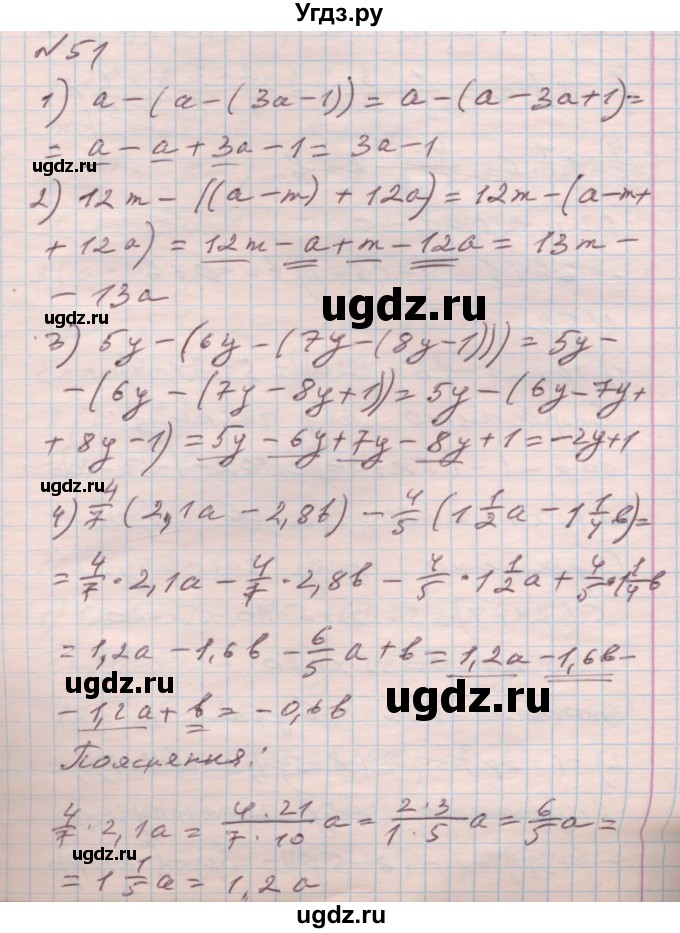 Угдз.ру
№51
1) a-(a-(3a-1))=a-(a-3a+1)=
=a-a+3a-1=3a-1
ugdz.ru
2) 12m-((a-m)+12a)=12m-(a-m+
+12a)=12m-a+m-12a=13m-
ugdz.ru
-13a
ugdz.ru
3) 5y-(6y-(7y-(8y-1)))=5y-
-(6y-(7y-8y+1))=5y-(6y-7y+
+8y-1)=5y-6y+7y-8y+1=-2y+1
ugdz.ru
4) 4/7(2,1a-2,8b)-4/5(1 1/2a-1 1/4b)=
=4/7·2,1a-4/7·2,8b-4/5·1 1/2a+4/5·1 1/4b
=1,2a-1,6b-6/5a+b=1,2a-1,6b-
ugdz.ru
ugdz.ru
-1,2a+b=-0,6b
Пояснення:
4/7·2,1a=4·21/7·10a=2·3/1·5a=6/5a=
ugdz.ru
=1 1/5a=1,2a
ugdz.ru
ugdz.ru